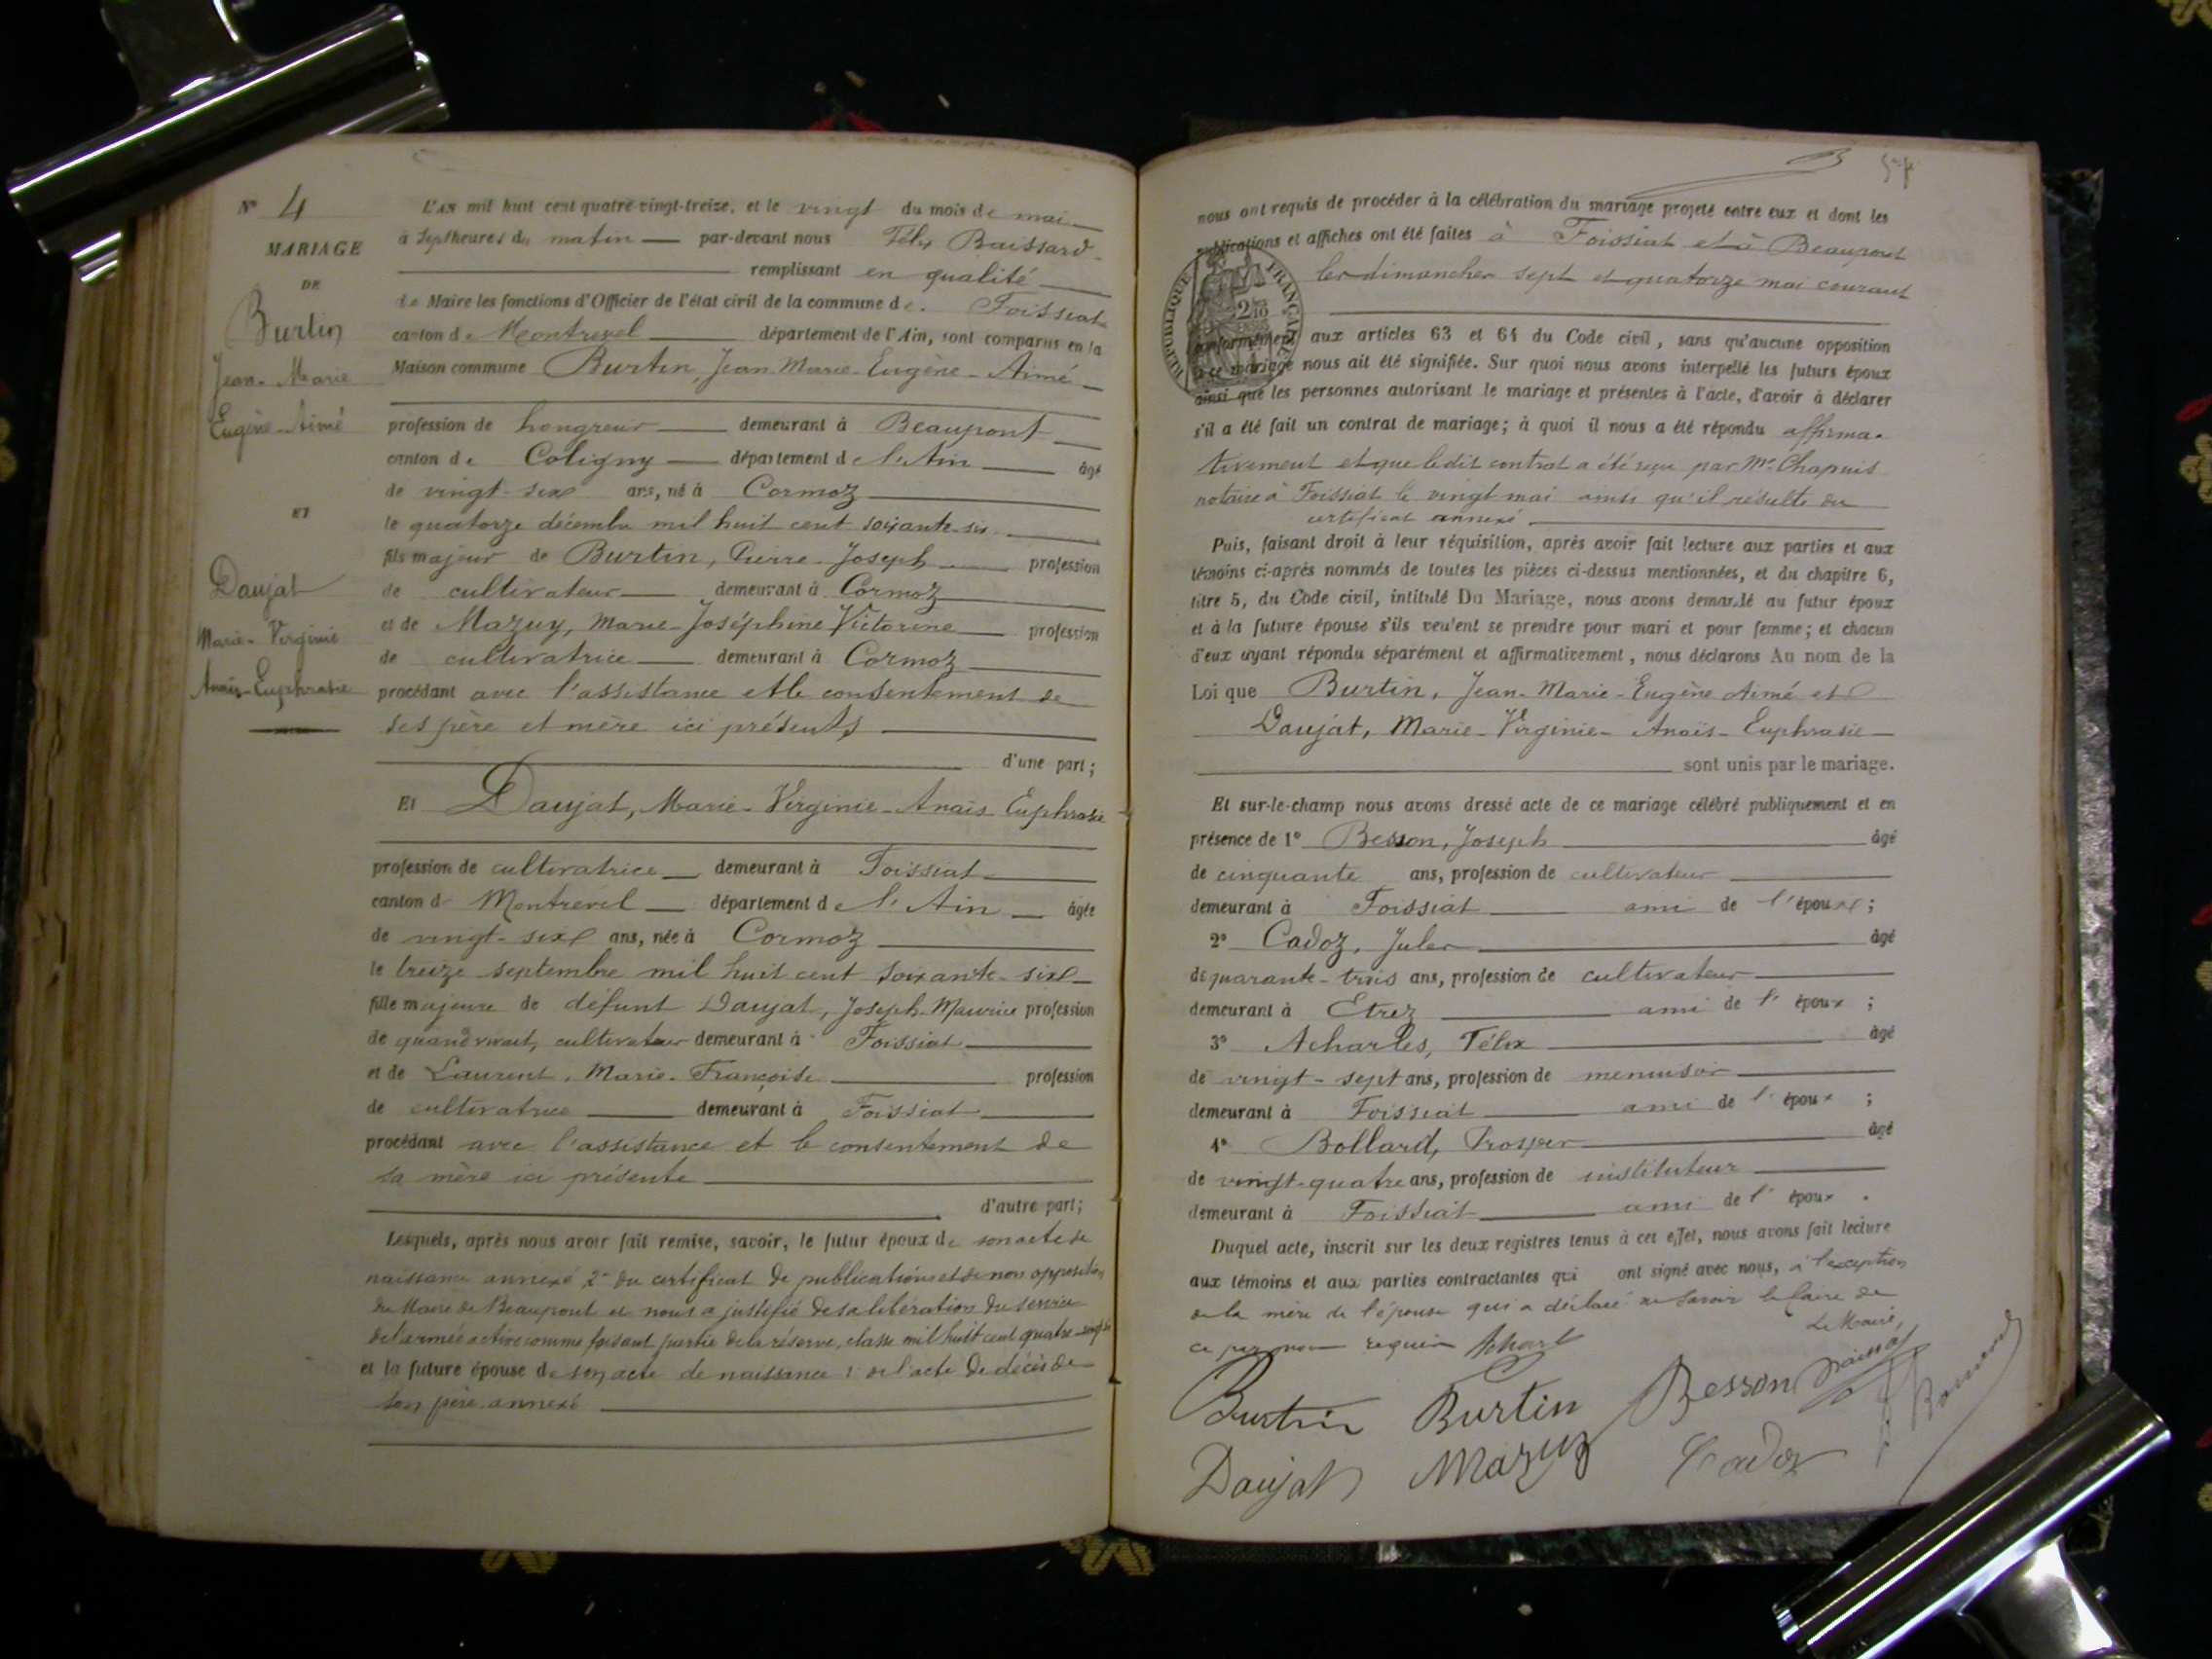 N° 4
MARIAGE
DE
Burtin
Jean-Marie
Eugène-Aimé
ET
Daujat
Marie-Virginie
Anaïs-Euphrasie
L'AN mil huit cent quatre-vingt-treize, et le vingt du mois de mai
à sept heures du matin par-devant nous Félix Baissard
remplissant en qualité
de Maire les fonctions d'Officier de l'état civil de la commune de Foissiat
canton de Montrevel département de l'Ain, sont comparus en la
Maison commune Burtin, Jean-Marie-Eugène-Aimé
profession de hongreur demeurant à Beaupont
canton de Coligny département de l'Ain âgé
de vingt-six ans, né à Cormoz
le quatorze décembre mil huit cent soixante-six
fils majeur de Burtin, Pierre-Joseph profession
de cultivateur demeurant à Cormoz
et de Mazuy, Marie-Joséphine Victorine profession
de cultivatrice demeurant à Cormoz
procédant avec l'assistance et le consentement de
ses père et mère ici présents
d'une part;
Et Daujat, Marie-Virginie-Anaïs-Euphrasie
profession de cultivatrice demeurant à Foissiat
canton de Montrevel département de l'Ain âgée
de vingt-six ans, née à Cormoz
le treize septembre mil huit cent soixante-six
fille majeure de défunt Daujat, Joseph-Maurice profession
de quand vivait, cultivateur demeurant à Foissiat
et de Laurent, Marie-Françoise profession
de cultivatrice demeurant à Foissiat
procédant avec l'assistance et le consentement de
sa mère ici présente
d'autre part;
Lesquels, après nous avoir fait remise, savoir, le futur époux de son acte de
naissance annexé 2° du certificat de publications et de non opposition
du Maire de Beaupont et nous a justifié de sa libération du service
de l'armée active comme faisant partie de la réserve, classe mil huit cent quatre-vingt-six
et la future épouse de son acte de naissance : de l'acte de décès de
son père annexé
nous ont requis de procéder à la célébration du mariage projeté entre eux et dont les
publications et affiches ont été faites à Foissiat et à Beaupont
les dimanches sept et quatorze mai courant
RÉPUBLIQUE FRANÇAISE
conformément aux articles 63 et 64 du Code civil, sans qu'aucune opposition
à ce mariage nous ait été signifiée. Sur quoi nous avons interpellé les futurs époux
ainsi que les personnes autorisant le mariage et présentes à l'acte, d'avoir à déclarer
s'il a été fait un contrat de mariage; à quoi il nous a été répondu affirma-
tivement et que ledit contrat a été reçu par Me Chapuis
notaire à Foissiat le vingt mai ainsi qu'il résulte du
certificat annexé
Puis, faisant droit à leur réquisition, après avoir fait lecture aux parties et aux
témoins ci-après nommés de toutes les pièces ci-dessus mentionnées, et du chapitre 6,
titre 5, du Code civil, intitulé Du Mariage, nous avons demandé au futur époux
et à la future épouse s'ils veulent se prendre pour mari et pour femme; et chacun
d'eux ayant répondu séparément et affirmativement, nous déclarons Au nom de la
Loi que Burtin, Jean-Marie-Eugène Aimé et
Daujat, Marie-Virginie-Anaïs-Euphrasie
sont unis par le mariage.
Et sur-le-champ nous avons dressé acte de ce mariage célébré publiquement et en
présence de 1° Besson, Joseph âgé
de cinquante ans, profession de cultivateur
demeurant à Foissiat ami de l'épouse;
2° Cadoz, Jules âgé
de quarante-trois ans, profession de cultivateur
demeurant à Etrez ami de l'époux;
3° Acharles, Félix âgé
de vingt-sept ans, profession de menuisier
demeurant à Foissiat ami de l'époux;
4° Bollard, Prosper âgé
de vingt-quatre ans, profession de instituteur
demeurant à Foissiat ami de l'époux.
Duquel acte, inscrit sur les deux registres tenus à cet effet, nous avons fait lecture
aux témoins et aux parties contractantes qui ont signé avec nous, à l'exception
de la mère de l'épouse qui a déclaré ne savoir le faire de
ce requise
Le Maire,
Burtin Burtin Besson
Daujat Mazuy Cadoz